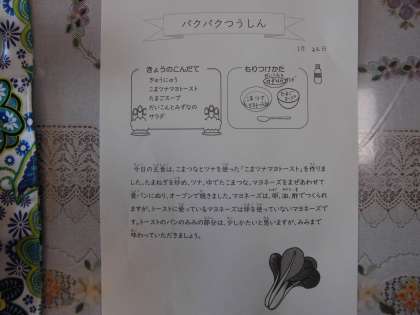 パクパクつうしん
1月 26日
きょうのこんだて
ぎゅうにゅう
こまツナマヨトースト
たまごスープ
だいこんとみずなの
サラダ
もりつけかた
今日の主食は、こまつなとツナを使った「こまツナマヨトースト」を作りま
した。たまねぎを炒め、ツナ、ゆでたこまつな、マヨネーズをまぜあわせて
食パンにぬり、オーブンで焼きました。マヨネーズは、卵、油、酢でつくられ
ますが、トーストに使っているマヨネーズは卵を使っていないマヨネーズで
す。トーストのパンのみみの部分は、少しかたいと思いますが、みみまで
味わっていただきましょう。